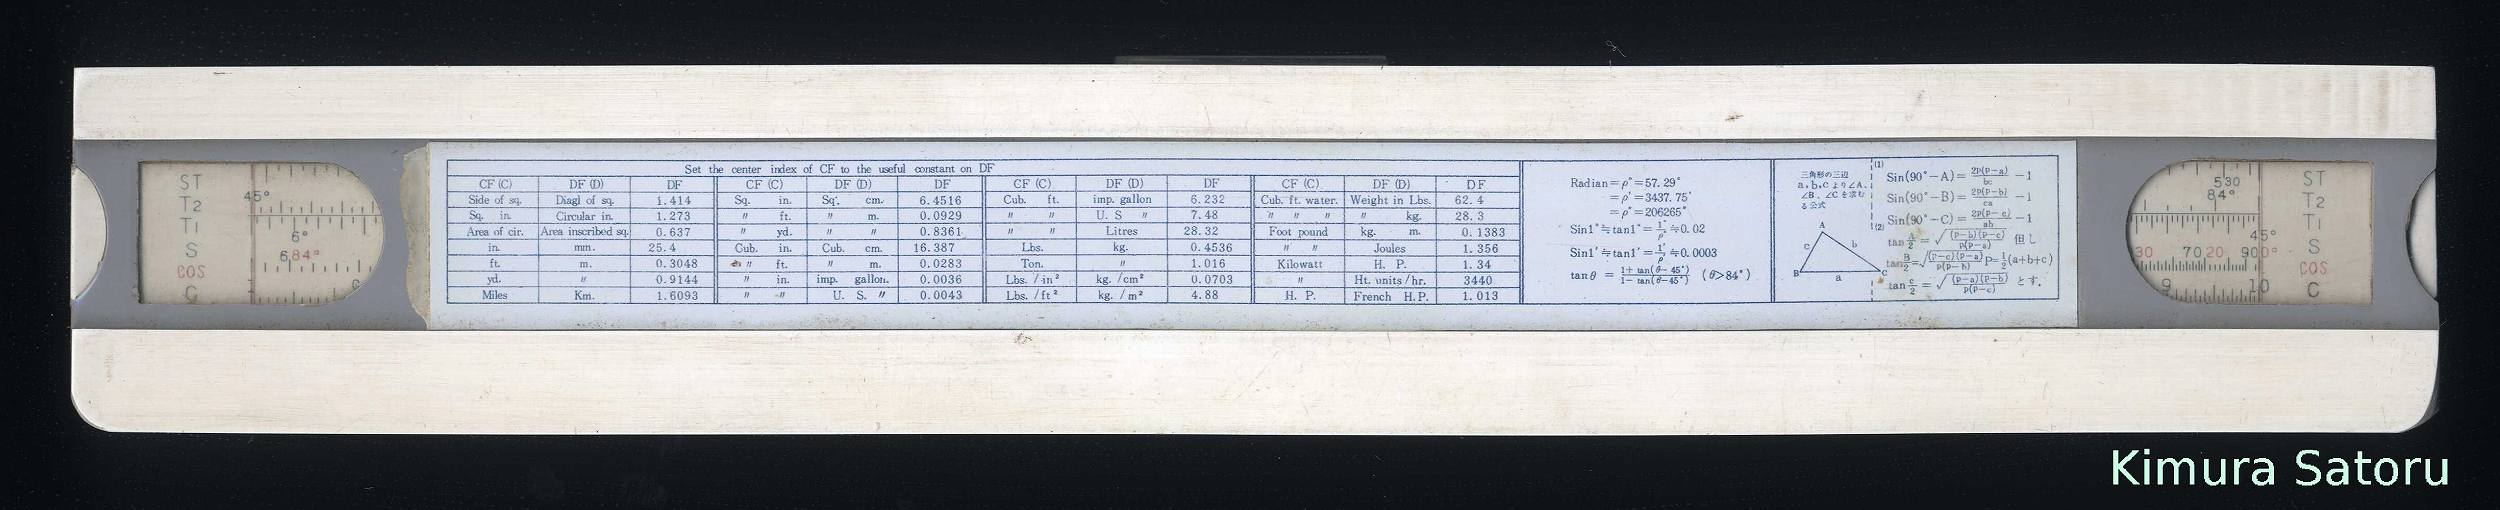 Set the center index of CF to the useful constant on DF
CF (C) DF (D) DF CF (C) DF (D) DF CF (C) DF (D) DF CF (C) DF (D) DF
Side of sq. Diagl of sq. 1.414 Sq. in. Sq. cm. 6.4516 Cub. ft. imp. gallon 6.232 Cub. ft. water. Weight in Lbs. 62.4
Sq. in. Circular in. 1.273 〃 ft. 〃 m. 0.0929 〃 〃 U. S 〃 7.48 〃 〃 〃 〃 kg. 28.3
Area of cir. Area inscribed sq. 0.637 〃 yd. 〃 〃 0.8361 〃 〃 Litres 28.32 Foot pound kg. m. 0.1383
in. mm. 25.4 Cub. in. Cub. cm. 16.387 Lbs. kg. 0.4536 〃 〃 Joules 1.356
ft. m. 0.3048 〃 ft. 〃 m. 0.0283 Ton. 〃 1.016 Kilowatt H. P. 1.34
yd. 〃 0.9144 〃 in. imp. gallon. 0.0036 Lbs. /in² kg. /cm² 0.0703 〃 Ht. units/hr. 3440
Miles Km. 1.6093 〃 〃 U. S. 〃 0.0043 Lbs. /ft² kg. /m² 4.88 H. P. French H.P. 1.013
Radian=ρ°=57.29°
=ρ'=3437.75'
=ρ"=206265"
Sin1°≒tan1°=1°/ρ°≒0.02
Sin1'≒tan1'=1'/ρ'≒0.0003
tanθ = 1+tan(θ-45°)/1-tan(θ-45°) (θ>84°)
三角形の三辺
a,b,c より∠A.
∠B.∠C を求む
る公式
A
c b
B a C
(1)
Sin(90°-A)= 2p(p-a)/bc -1
Sin(90°-B)= 2p(p-b)/ca -1
Sin(90°-C)= 2p(p-c)/ab -1
(2)
tan A/2 = √(p-b)(p-c)/p(p-a) 但し
tan B/2 = √(p-c)(p-a)/p(p-b) P=1/2(a+b+c)
tan C/2 = √(p-a)(p-b)/p(p-c) とす.
ST
T2
T1
S
COS
C
45°
6°
6 84°
ST
T2
T1
S
COS
C
530
84°
45°
30 70 20 90 0°
9 10
Kimura Satoru